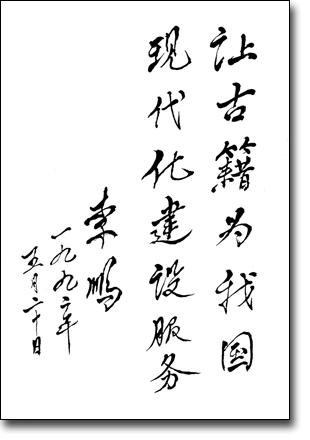 让古籍为我国
现代化建设服务
李鹏
一九九二年
五月二十日